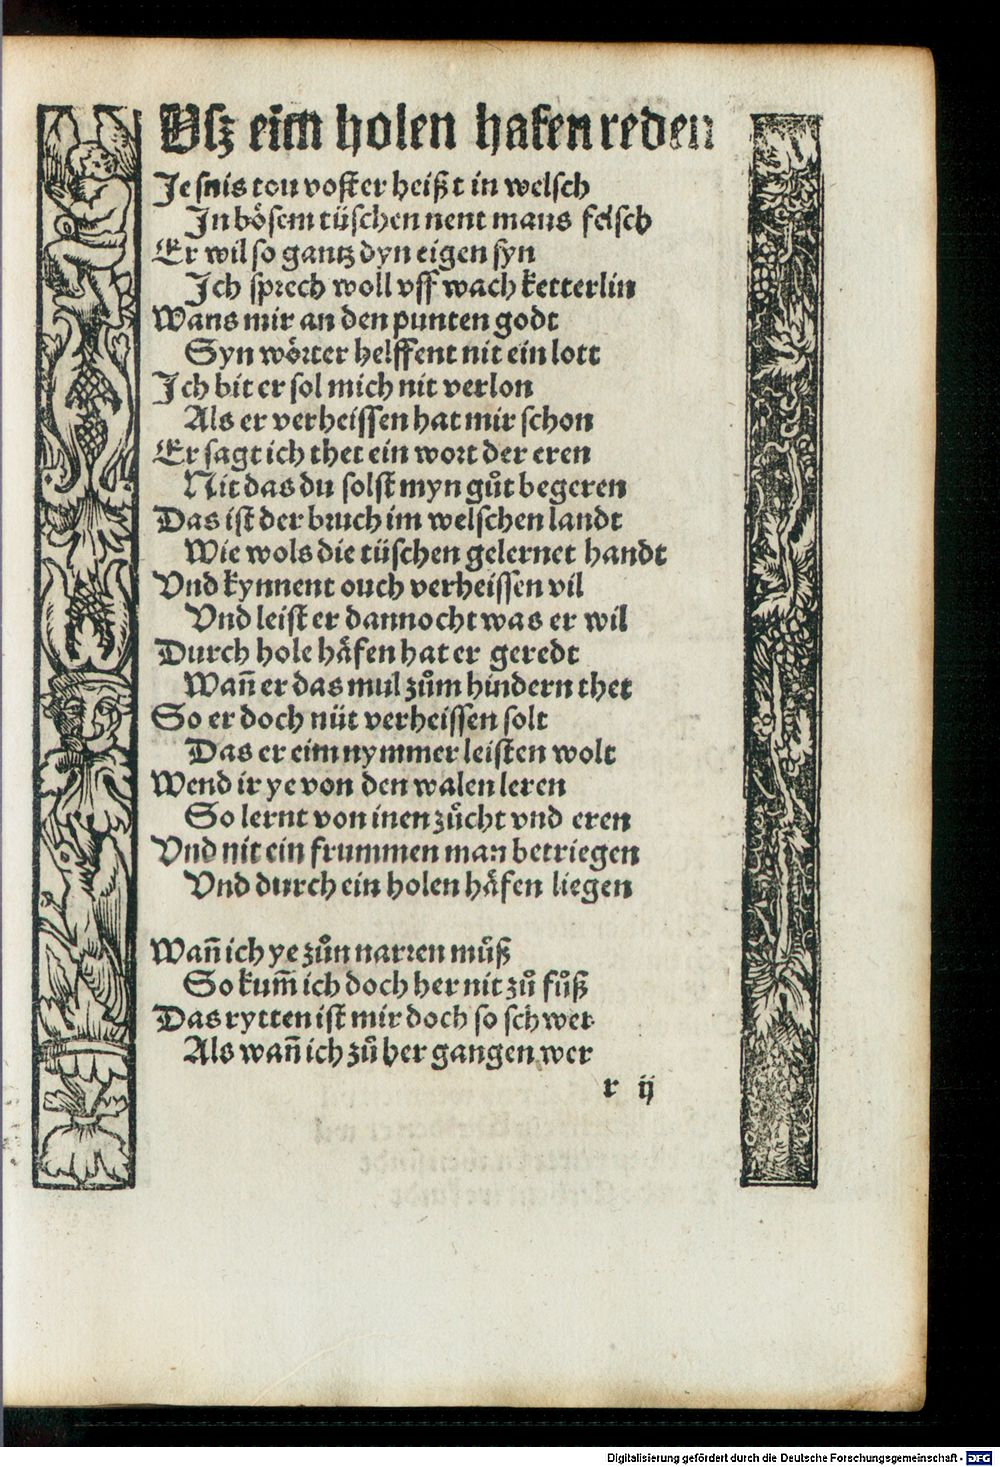 Vsz eim holen hafen reden
Je suis tou voster heißt in welsch
In bösem tüschen nent mans felsch
Er wil so gantz dyn eigen syn
Ich sprech woll vff wach ketterlin
Wans mir an den punten godt
Syn wörter helffent nit ein lott
Ich bit er sol mich nit verlon
Als er verheissen hat mir schon
Er sagt ich thet ein wort der eren
Nit das du solst myn gůt begeren
Das ist der bruch im welschen landt
Wie wols die tüschen gelernet handt
Vnd kynnent ouch verheissen vil
Vnd leist er dannocht was er wil
Durch hole häfen hat er geredt
Wañ er das mul zům hindern thet
So er doch nüt verheissen solt
Das er eim nymmer leisten wolt
Wend ir ye von den walen leren
So lernt von inen zůcht vnd eren
Vnd nit ein frummen man betriegen
Vnd durch ein holen häfen liegen
Wañ ich ye zůn narren můß
So kum̄ ich doch her nit zů fůß
Das rytten ist mir doch so schwer
Als wañ ich zů her gangen wer
r ij
Digitalisierung gefördert durch die Deutsche Forschungsgemeinschaft - DFG